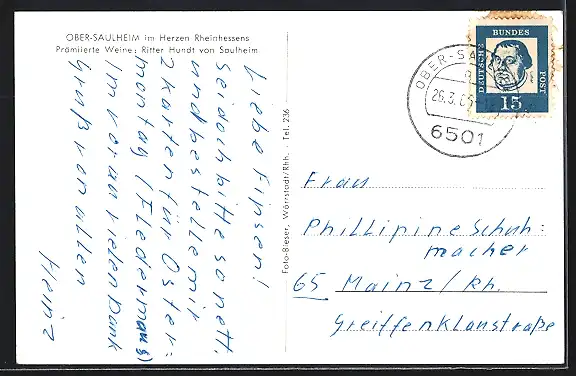 OBER-SAULHEIM im Herzen Rheinhessens
Prämiierte Weine: Ritter Hundt von Saulheim
Liebe Finsen!
Seid doch bitte so nett,
und bestelle mir
2 Karten für Oster=
montag (Fledermaus)
Im voraus vielen Dank
Gruß von allen
Heinz
Foto-Bleser, Wörrstadt/Rhh. - Tel. 236
OBER-SA
26.3.65
6501
DEUTSCHE
BUNDES
POST
15
Frau
Phillipine Schuh=
macher
65 Mainz/Rh.
Greiffenklaustraße